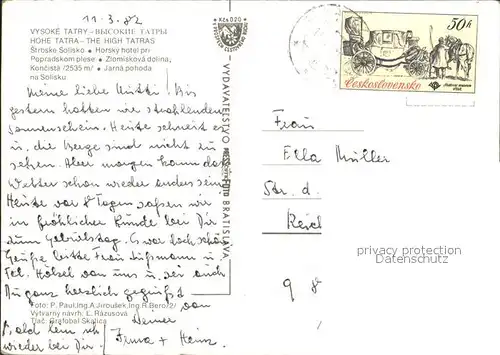 11.3.82
VYSOKÉ TATRY – ВЫСОКИЕ ТАТРЫ
HOHE TATRA – THE HIGH TATRAS
Štrbské Solisko • Horský hotel pri
Popradskom plese • Zlomisková dolina,
Končistá /2535 m/ • Jarná pohoda
na Solisku
Meine liebe Mutti! Bis
gestern hatten wir strahlenden
Sonnenschein. Heute schneit es
u. die Berge sind nicht zu
sehen. Aber morgen kann das
Wetter schon wieder anders sein.
Heute vor 8 Tagen saßen wir
in fröhlicher Runde bei Dir
zum Geburtstag. Es war doch schön.
Grüße bitte Frau Süßmann u.
Tel. Hölsel von uns u. sei auch
Du ganz herzlich gegrüßt
von
Deiner
Irma + Heinz
Bald bin ich
wieder bei Dir.
Foto: P. Paul, Ing. A. Jiroušek, Ing. R. Bero/2/
Výtvarný návrh: L. Rázusová
Tlač: Grafobal Skalica
Kčs 0,20
VYDAVATEĽSTVO
PRESSFOTO
BRATISLAVA
50h
Československo
Frau
Ella Müller
Str. d.
Reich
privacy protection
AnsichtskartenVersand.com
9 8